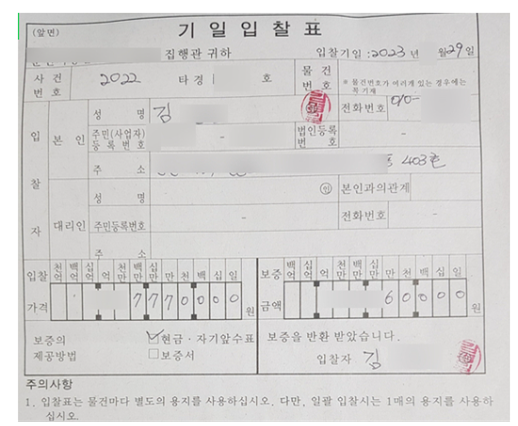 (앞면)
기 일 입 찰 표
집행관 귀하 입찰기일 : 2023 년 월 29 일
사 건 번 호 2022 타경 호 물 건 번 호 ※ 물건번호가 여러개 있는 경우에는 꼭 기재
입 찰 자
본 인 성 명 김 전화번호 010-
주민(사업자) 등 록 번 호 - 법인등록 번 호 -
주 소 403호
대리인 성 명 ㊞ 본인과의관계
주민등록번호 - 전화번호 -
주 소
입찰 가격 천억 백억 십억 억 천만 백만 십만 만 천 백 십 일 원
7 7 7 0 0 0 0
보증 금액 백억 십억 억 천만 백만 십만 만 천 백 십 일 원
6 0 0 0 0
보증의 제공방법 ☑현금·자기앞수표
□보증서
보증을 반환 받았습니다.
입찰자 김
주의사항
1. 입찰표는 물건마다 별도의 용지를 사용하십시오. 다만, 일괄 입찰시는 1매의 용지를 사용하
십시오.